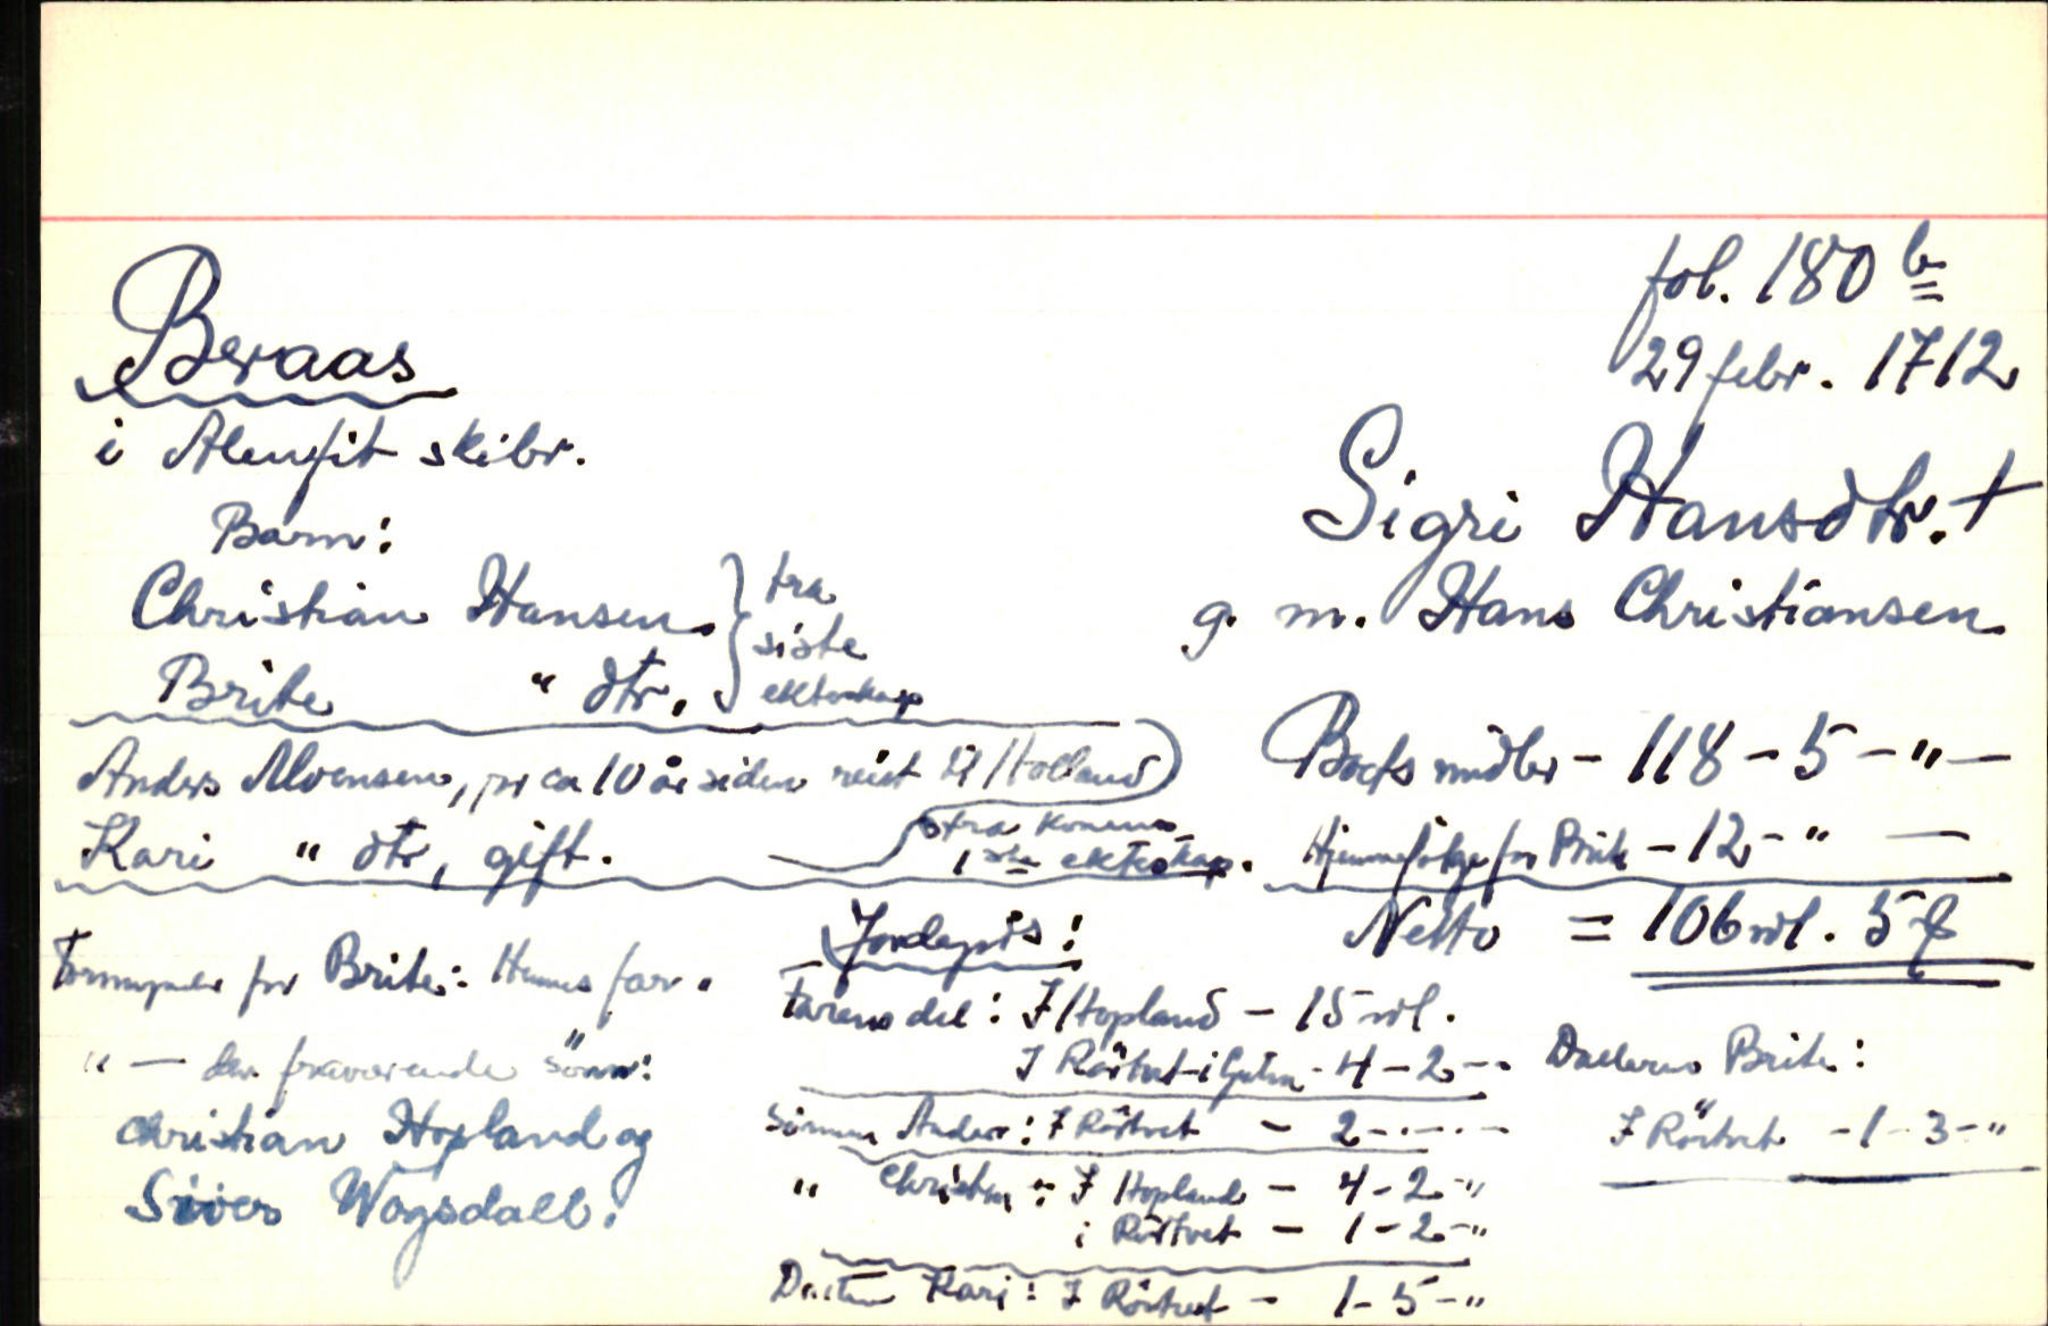 fol. 180 b
29 febr. 1712
Beraas
i Alenfit skibr.
Sigri Hansdtr. +
g. m. Hans Christiansen
Barn:
Christian Hansen
Brite " dtr.
fra
siste
ekteskap
Anders Monsen, for ca 10 år siden reist til Holland
Kari " dtr, gift.
fra konens
1ste ekteskap.
Boets midler - 118 - 5 - " -
Hjemmefølge for Brite - 12 - " -
Netto = 106 rdl. 5
Formynder for Brite: Hennes far.
" - den fraværende sönn:
Christian Hopland og
Siver Wogsdall.
Jordegods:
Farens del: I Hopland - 15 rdl.
I Röstvet - 4 - 2 -
Sönnen Anders: I Röstvet - 2 - . - . -
" Christian: I Hopland - 4 - 2 - "
i Röstvet - 1 - 2 - "
Datteren Kari: I Röstvet - 1 - 5 - "
Datteren Brite:
I Röstvet - 1 - 3 - "